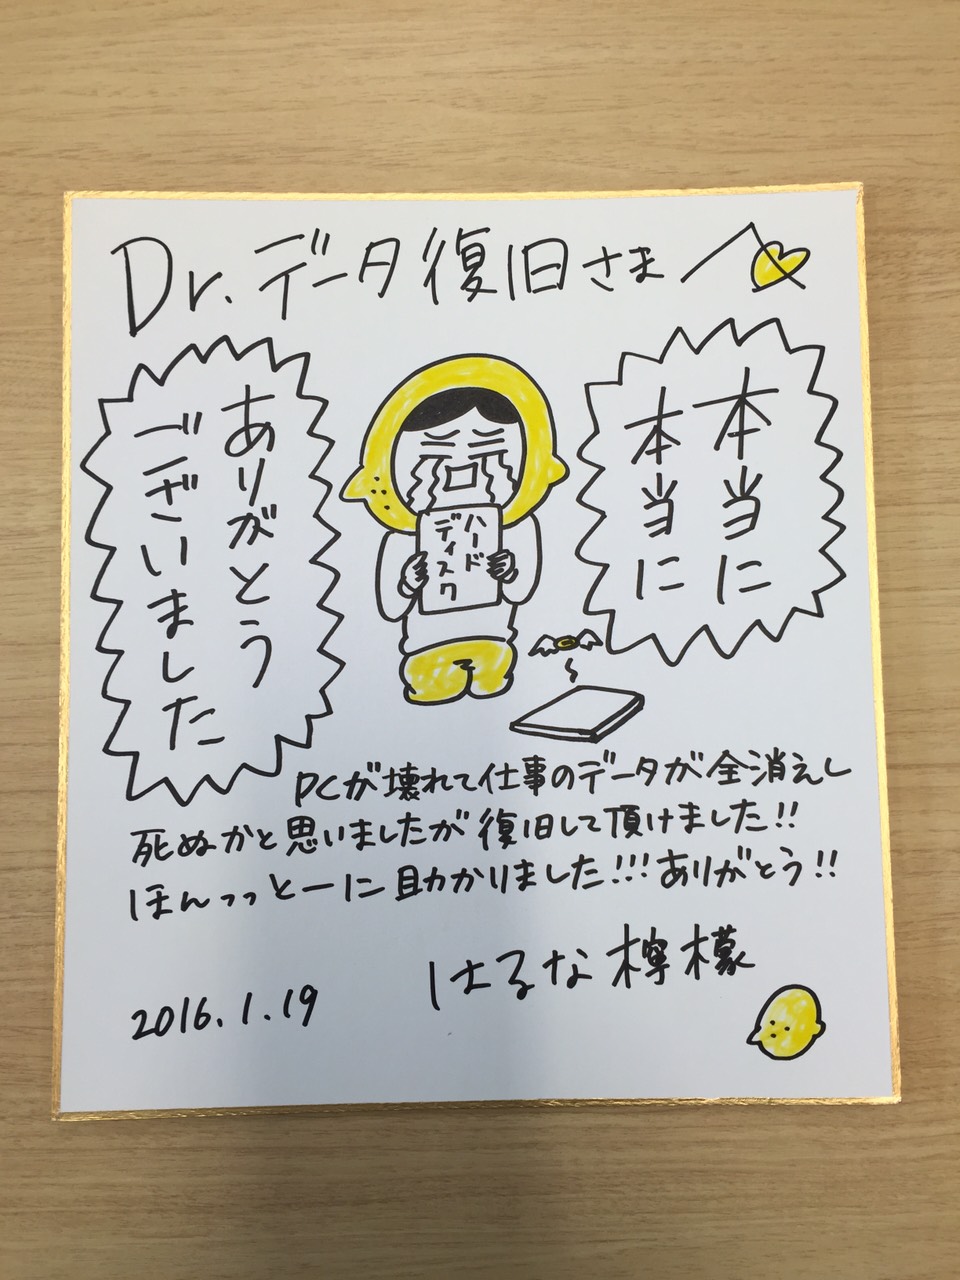 Dr.データ復旧さま
本当に
本当に
ありがとう
ございました
ハード
ディスク
PCが壊れて仕事のデータが全消えし
死ぬかと思いましたが復旧して頂けました!!
ほんっっとーに助かりました!!!ありがとう!!
はるな檸檬
2016.1.19